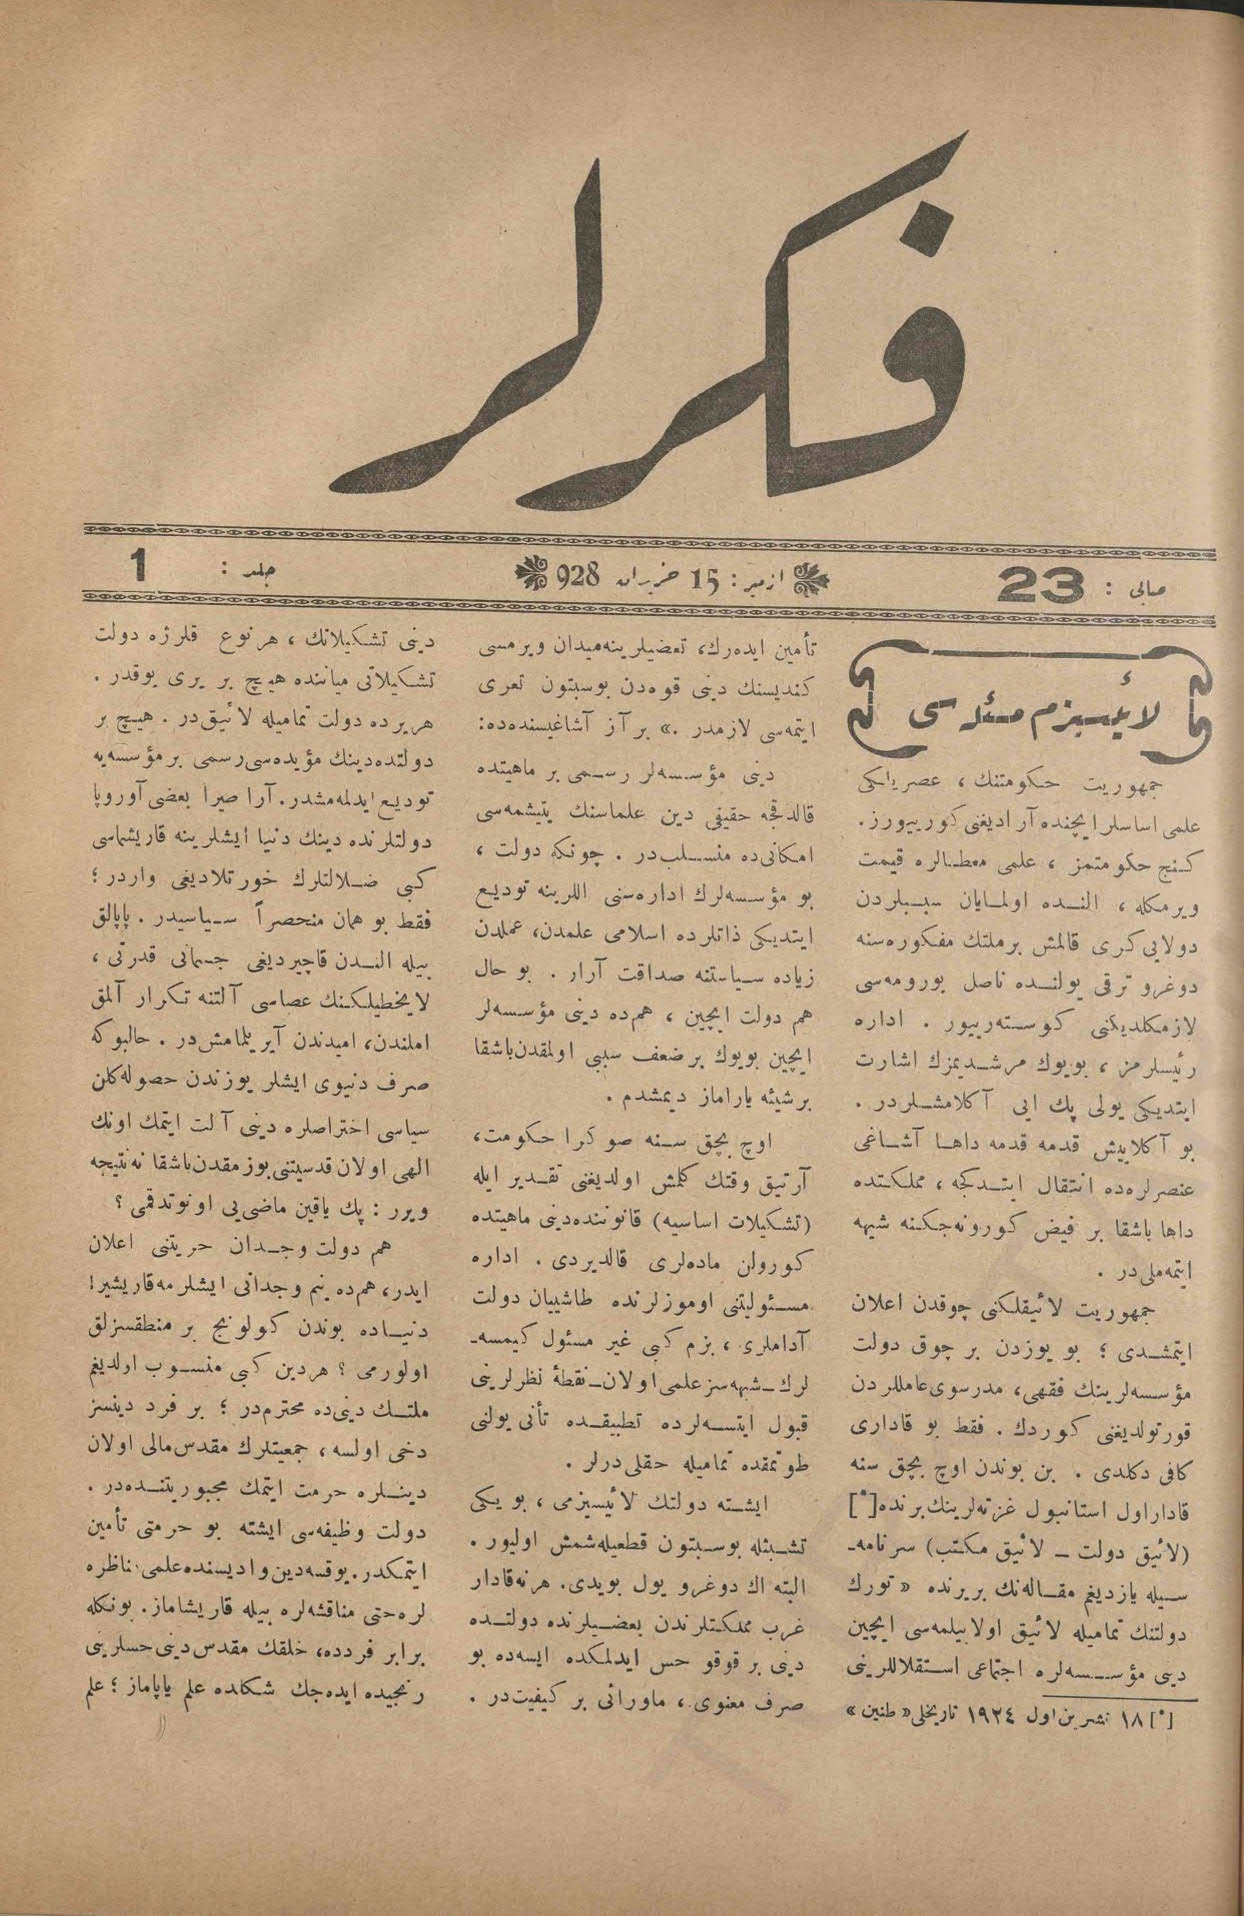 فكرلر
صايى : 23
ازمير : 15 خزيران 928
جلد : 1
لائيسيزم مسئله سى
جمهوريت حكومتنك ، عصريلكى
علمى اساسلر ايچنده آراديغنى كورييورز.
كنج حكومتمز ، علمى معطالره قيمت
ويرمكله ، النده اولمايان سببلردن
دولايى كرى قالمش بر ملتك مفكوره سنه
دوغرو ترقى يولنده ناصل يورومه سى
لازمكلديكنى كوسته رييور . اداره
رئيسلرمز ، بويوك مرشديمزك اشارت
ايتديكى يولى پك ايى آكلامشلردر .
بو آكلاييش قدمه قدمه داها آشاغى
عنصرلره ده انتقال ايتدكجه ، مملكتده
داها باشقا بر فيض كورونه جكنه شبهه
ايتمه ملى در .
جمهوريت لائيقلكنى چوقدن اعلان
ايتمشدى ؛ بو يوزدن بر چوق دولت
مؤسسه لرينك فقهى، مدرسوى عامللردن
قورتولديغنى كوردك . فقط بو قادارى
كافى دكلدى . بن بوندن اوچ بچق سنه
قادار اول استانبول غزته لرينك برنده [*]
(لائيق دولت ـ لائيق مكتب) سرنامه‌ـ
سيله يازديغم مقاله نك بر يرنده « تورك
دولتنك تماميله لائيق اولابيلمه سى ايچين
دينى مؤسسه لره اجتماعى استقلاللرينى
[*] ١٨ تشرين اول ١٩٢٤ تاريخلى « طنين »
تأمين ايده رك، تعضيلرينه ميدان ويرمسى
كنديسنك دينى قوه دن بوسبتون تعرى
ايتمه سى لازمدر .» بر آز آشاغيسنده ده:
دينى مؤسسه لر رسمى بر ماهيتده
قالدقجه حقيقى دين علماسنك يتيشمه سى
امكانى ده منسلب در . چونكه دولت ،
بو مؤسسه لرك اداره سنى اللرينه توديع
ايتديكى ذاتلرده اسلامى علمدن، عملدن
زياده سياستنه صداقت آرار . بو حال
هم دولت ايچين ، هم ده دينى مؤسسه لر
ايچين بويوك بر ضعف سببى اولمقدن باشقا
بر شيئه ياراماز ديمشدم .
اوچ بچق سنه صوكرا حكومت،
آرتيق وقتك كلمش اولديغنى تقدير ايله
(تشكيلات اساسيه) قانوننده دينى ماهيتده
كورولن ماده لرى قالديردى . اداره
مسئوليتنى اوموزلرنده طاشييان دولت
آداملرى ، بزم كبى غير مسئول كيمسه‌ـ
لرك ـ شبهه سز علمى اولان ـ نقطۀ نظرلرينى
قبول ايتسه لرده تطبيقده تأنى يولنى
طوتمقده تماميله حقلى درلر .
ايشته دولتك لائيسيزمى ، بو يكى
تشبثله بوسبتون قطعيله شمش اوليور .
البته اك دوغرو يول بويدى. هر نه قادار
غرب مملكتلرندن بعضيلرنده دولتده
دينى بر قوقو حس ايدلمكده ايسه ده بو
صرف معنوى ، ماورائى بر كيفيت در .
دينى تشكيلاتك ، هر نوع قلرژه دولت
تشكيلاتى ميانده هيچ بر يرى يوقدر .
هر يرده دولت تماميله لائيق در . هيچ بر
دولتده دينك مؤيده سى رسمى بر مؤسسه يه
توديع ايدلمه مشدر. آرا صيرا بعضى آوروپا
دولتلرنده دينك دنيا ايشلرينه قاريشماسى
كبى ضلالتلرك خورتلاديغى واردر ؛
فقط بو همان منحصراً سياسيدر . پاپالق
بيله الندن قاچيرديغى جسمانى قدرتى ،
لايخطيلكنك عصاسى آلتنه تكرار آلمق
املندن، اميدندن آيريلمامش در . حالبوكه
صرف دنيوى ايشلر يوزندن حصوله كلن
سياسى اختراصلره دينى آلت ايتمك اونك
الهى اولان قدسيتنى بوزمقدن باشقا نه نتيجه
ويرر : پك ياقين ماضى يى اونوتدقمى ؟
هم دولت وجدان حريتنى اعلان
ايدر، هم ده بنم وجدانى ايشلرمه قاريشير!
دنياده بوندن كولونج بر منطقسزلق
اولورمى ؟ هر دين كبى منسوب اولديغم
ملتك دينى ده محترم در ؛ بر فرد دينسز
دخى اولسه ، جمعيتلرك مقدس مالى اولان
دينلره حرمت ايتمك مجبوريتنده در .
دولت وظيفه سى ايشته بو حرمتى تأمين
ايتمكدر. يوقسه دين واديسنده علمى مناظره
لره حتى مناقشه لره بيله قاريشاماز. بونكله
برابر فردده، خلقك مقدس دينى حسلرينى
رنجيده ايده جك شكلده علم ياپاماز ؛ علم